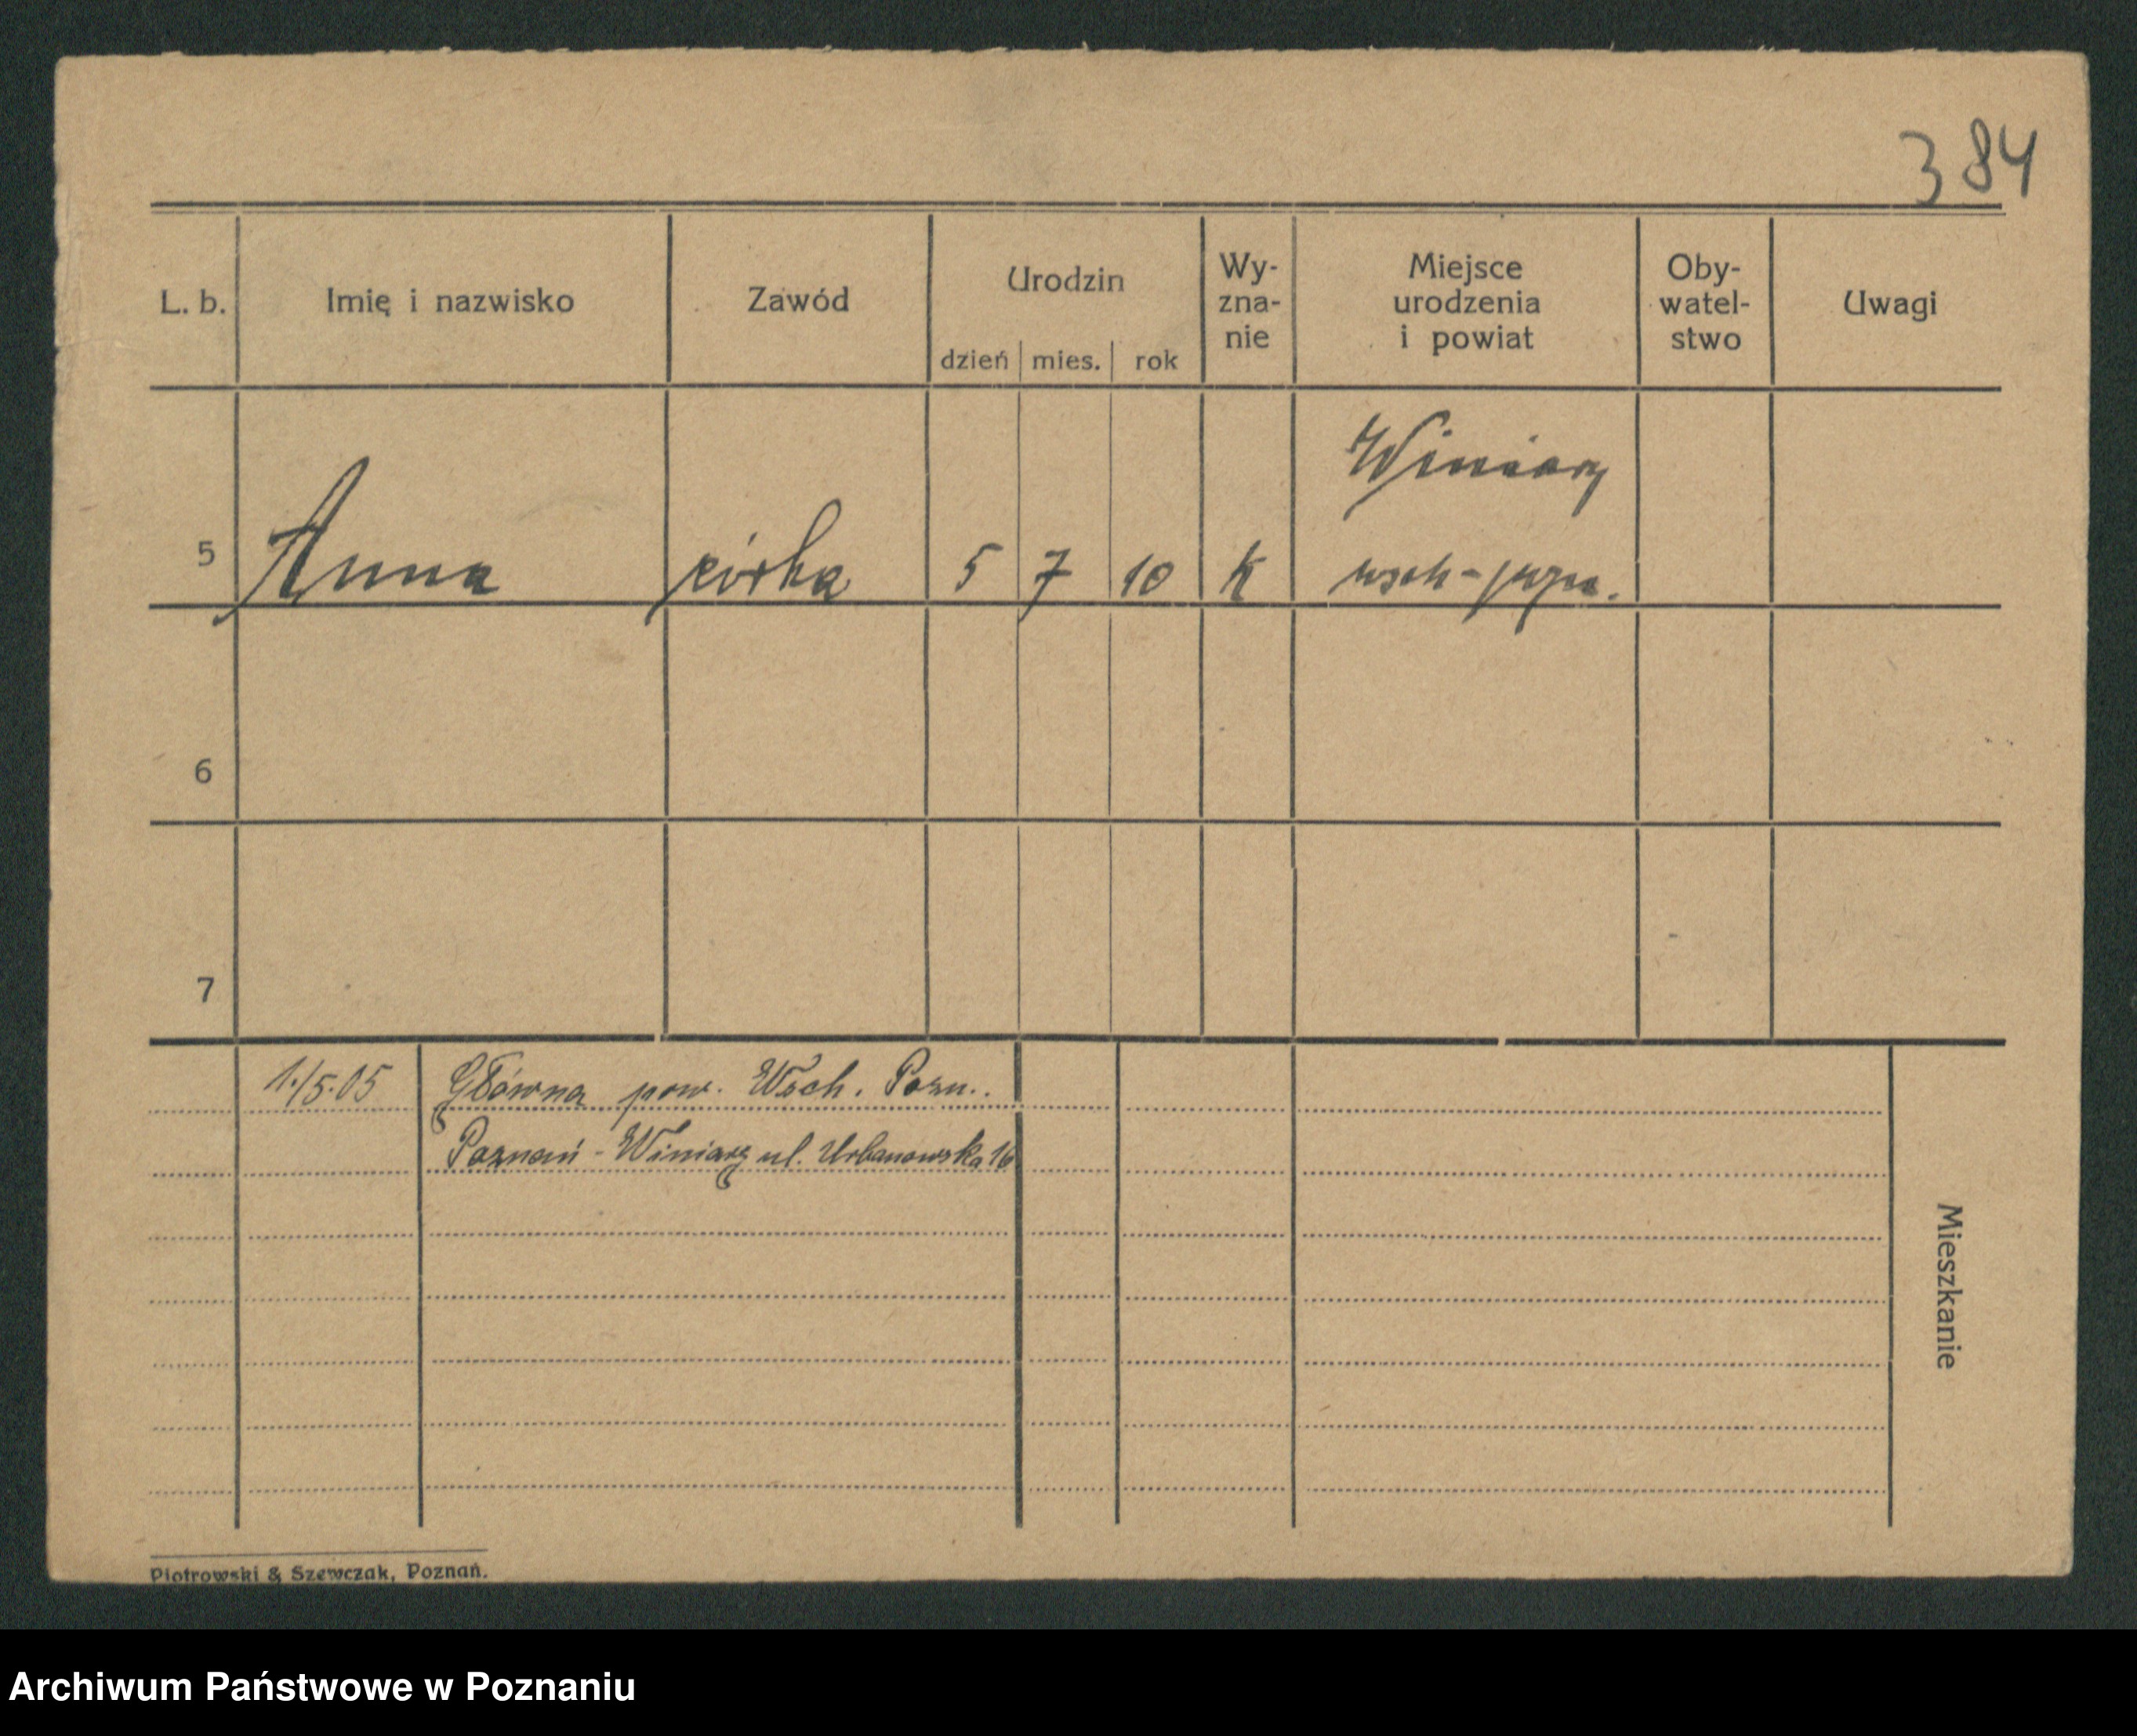 384
L. b. Imię i nazwisko Zawód Urodzin Wy- Miejsce Oby- Uwagi
zna- urodzenia watel-
nie i powiat stwo
dzień mies. rok
Winiary
5 Anna córka 5 7 10 k wsch-pozn.
6
7
1./5.05 Główna pow. Wsch. Pozn.
Poznań - Winiary ul. Urbanowska 16
Mieszkanie
Piotrowski & Szewczak, Poznań.
Archiwum Państwowe w Poznaniu